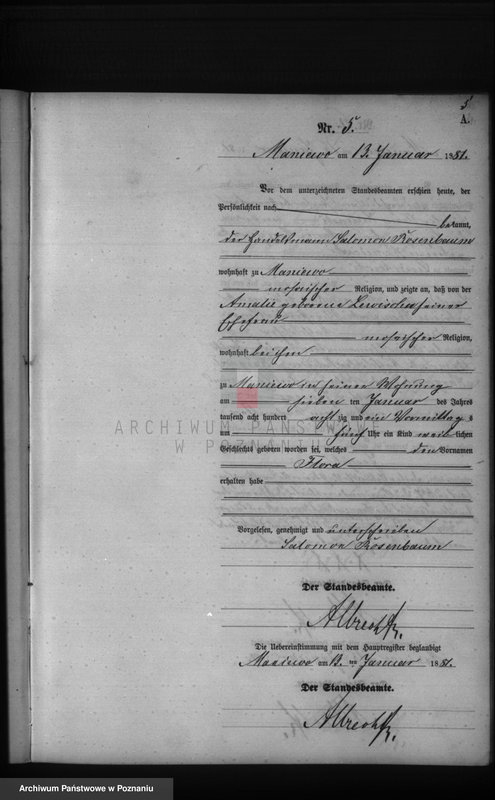 5
A.
Nr. 5.
Maniewo am 13. Januar 1881.
Vor dem unterzeichneten Standesbeamten erschien heute, der
Persönlichkeit nach
bekannt,
der Handelsmann Salomon Rosenbaum
wohnhaft zu Maniewo
mosaischer Religion, und zeigte an, daß von der
Amalie geborene Lewischn seiner
Ehefrau
mosaischer Religion,
wohnhaft bei ihm
zu Maniewo in seiner Wohnung
am sieben ten Januar des Jahres
tausend acht hundert acht zig und ein Vormittag s
um fünf Uhr ein Kind weib lichen
Geschlechts geboren worden sei, welches den Vornamen
Flora
erhalten habe
Vorgelesen, genehmigt und unterschrieben
Salomon Rosenbaum
Der Standesbeamte.
Albrecht
Die Uebereinstimmung mit dem Hauptregister beglaubigt
Maniewo am 13. ten Januar 1881.
Der Standesbeamte.
Albrecht
ARCHIWUM PAŃSTWOWE
W POZNANIU
Archiwum Państwowe w Poznaniu